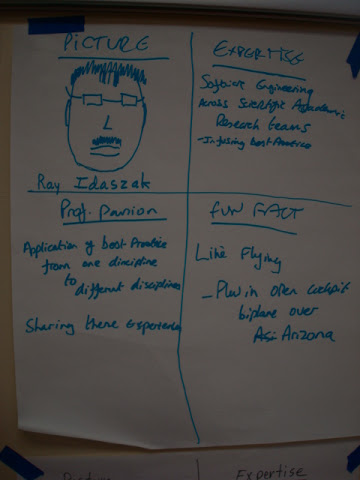 PICTURE
Ray Idaszak
EXPERTISE
Software Engineering
Across Scientific Academic
Research teams
- Infusing best Practice
Prof. Passion
Application of best Practice
from one discipline
to different disciplines
Sharing these experiences
FUN FACT
Like Flying
- Flew in open cockpit
biplane over
Arizona
Expertise